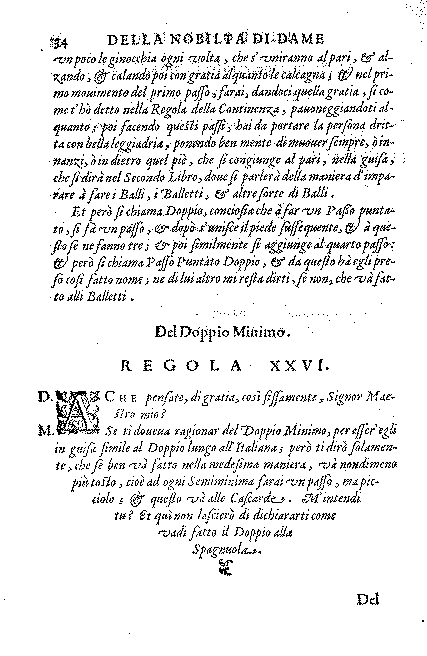 34 DELLA NOBILTÀ DI DAME
vn poco le ginocchia ogni volta, che s'vniranno al pari, & al-
zando, & calando poi con gratia alquanto le calcagna; & nel pri-
mo mouimento del primo passo, farai, dandoci quella gratia, si co-
me t'hò detto nella Regola della Continenza, pauoneggiandoti al-
quanto; poi facendo questi passi, hai da portare la persona drit-
ta con bella leggiadria, ponendo ben mente di muouer sempre, ò in-
nanzi, ò in dietro quel piè, che si congiunge al pari, nella guisa,
che si dirà nel Secondo Libro, doue si parlerà della maniera d'impa-
rare à fare i Balli, i Balletti, & altre sorte di Balli.
Et però si chiama Doppio, conciosia che à far vn Passo punta-
to, si fà vn passo, & dopò s'vnisce il piede sussequente, & à que-
sto se ne fanno tre; & poi similmente si aggiunge al quarto passo:
& però si chiama Passo Puntato Doppio, & da questo hà egli pre-
so così fatto nome; ne di lui altro mi resta dirti, se non, che và fat-
to alli Balletti.
Del Doppio Minimo.
REGOLA XXVI.
D. A CHE pensate, di gratia, così fissamente, Signor Mae-
stro mio?
M. Se ti doueua ragionar del Doppio Minimo, per esser'egli
in guisa simile al Doppio lungo all'Italiana; però ti dirò solamen-
te, che se ben và fatto nella medesima maniera, và nondimeno
più tosto, cioè ad ogni Semiminima farai vn passo, ma pic-
ciolo; & questo và alle Cascarde. M'intendi
tu? Et quì non lascierò di dichiararti come
vadi fatto il Doppio alla
Spagnuola.
Del